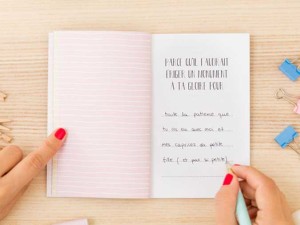 PARCE QU'IL FAUDRAIT
ÉRIGER UN MONUMENT
À TA GLOIRE POUR
toute la patience que
tu as eue avec moi et
mes caprices de petite
fille ( et pour la petite